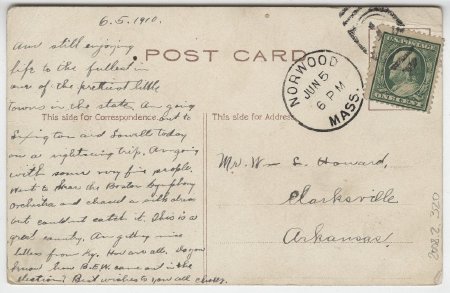 6.5.1910.
Am still enjoying
life to the fullest in
one of the prettiest little
towns in the state. Am going
out to
Lexington and Lowell today
on a sightseeing trip. Am going
with some very fine people.
Went to hear the Boston Symphony
Orchestra and a
but couldnt catch it. This is a
great country. Am getting nice
letters from Ky. How are all. Do you
know how B.E.W. came out in the
election? Best wishes to you all
POST CARD
This side for Correspondence
This side for Address
NORWOOD
JUN 5
6 PM
MASS.
U.S. POSTAGE
ONE CENT
Mr. W S. Howard,
Clarksville
Arkansas.